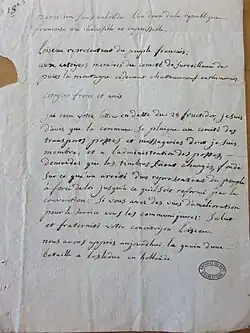 Paris 
L'an deux de la republique
francaise une indivisible et imperissable
Loiseau representant du peuple francais
aux citoyens membres du comité de surveillance de
puis la montagne cidevant chateauneuf
Citoyens freres et amis
J'ai recu votre lettre en datte du 28 fructidor je suis
d'avis que la commune se plaigne au comité des
transports postes et messageries dont je suis
membre, et a l'administration des postes,
demandés que les timbres soient changés, fondé
sur ce qu'un arreté d'un representant du peuple
a force de loi jusqu'a ce qu'il soit reformé par la
convention. Si vous avez des vues d'amelioration
pour le service vous les communiquerez. Salut
et fraternité votre concitoyen Loiseau
nous avons appris aujourd'hui le gain d'une
bataille a